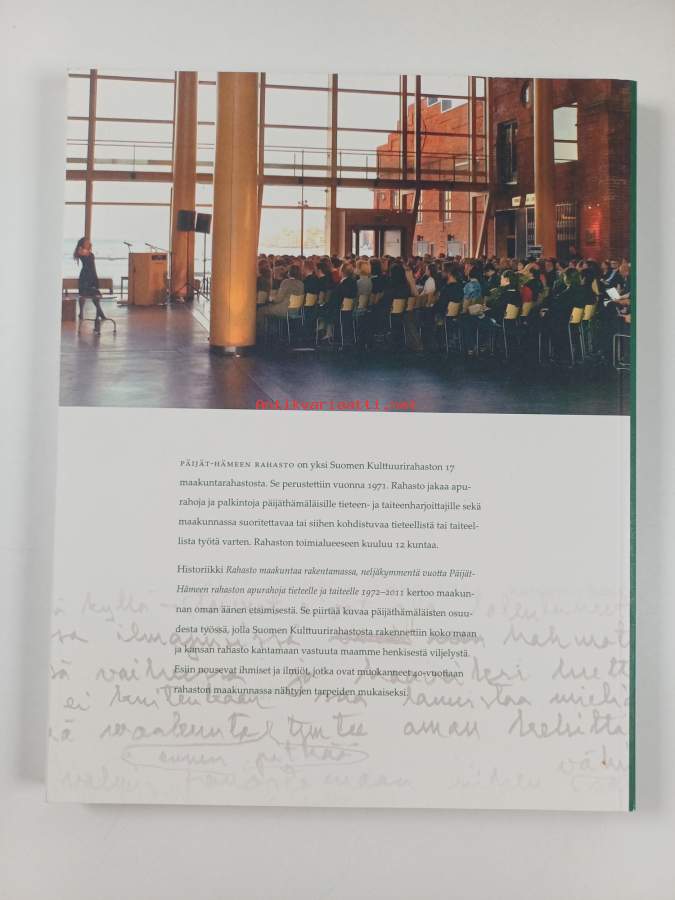 Antikvariaatti.net
PÄIJÄT-HÄMEEN RAHASTO on yksi Suomen Kulttuurirahaston 17
maakuntarahastosta. Se perustettiin vuonna 1971. Rahasto jakaa apu-
rahoja ja palkintoja päijäthämäläisille tieteen- ja taiteenharjoittajille sekä
maakunnassa suoritettavaa tai siihen kohdistuvaa tieteellistä tai taiteel-
lista työtä varten. Rahaston toimialueeseen kuuluu 12 kuntaa.
Historiikki Rahasto maakuntaa rakentamassa, neljäkymmentä vuotta Päijät-
Hämeen rahaston apurahoja tieteelle ja taiteelle 1972–2011 kertoo maakun-
nan oman äänen etsimisestä. Se piirtää kuvaa päijäthämäläisten osuu-
desta työssä, jolla Suomen Kulttuurirahastosta rakennettiin koko maan
ja kansan rahasto kantamaan vastuuta maamme henkisestä viljelystä.
Esiin nousevat ihmiset ja ilmiöt, jotka ovat muokanneet 40-vuotiaan
rahaston maakunnassa nähtyjen tarpeiden mukaiseksi.
maakunta tuntee oman